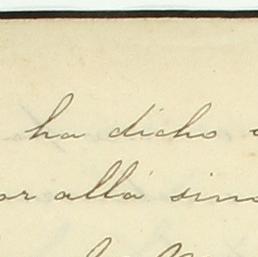 ha dicho
or allá sino